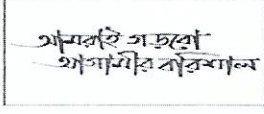 আমরাই গড়বো
আগামীর বরিশাল